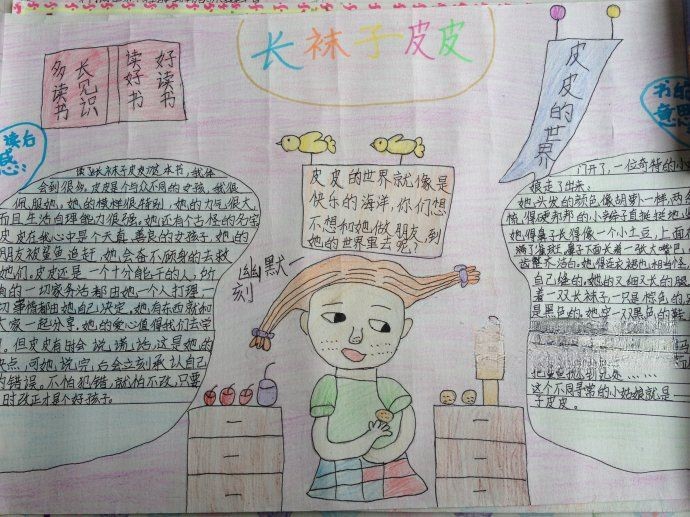 长袜子皮皮
多读书
长见识
读好书
好读书
皮皮的世界
读后感:
书的
意思
皮皮的世界就像是
快乐的海洋,你们想
不想和她做朋友,到
她的世界里去呢?
幽默一
刻
读了长袜子皮皮这本书,我体
会到很多。皮皮是个与众不同的女孩,我很
佩服她,她的模样很特别,她的力气很大,
而且生活自理能力很强。她还有个古怪的名字
皮皮在我心中是个天真善良的女孩子,她的
朋友被鲨鱼追赶,她会奋不顾身的去救
她们。皮皮还是一个十分能干的人,所
有的一切家务活都由她一个人打理一
切事情都由她自己决定,她有东西就和
大家一起分享,她的爱心值得我们去学
但皮皮有时会说谎话,这是她的
缺点,可她说完后会立刻承认自己
的错误。不怕犯错,就怕不改,只要
时改正才是个好孩子。
门开了,一位奇特的小
娘走了出来。
她头发的颜色像胡萝卜一样,两
梳得硬邦邦的小辫子直挺挺地
她的鼻子长得像一个小土豆,上面
满了雀斑。鼻子下面长着一张大嘴巴,
齿整齐洁白。她的连衣裙也相当怪,
自己缝的,她的又细又长的腿
着一双长袜子一只是棕色的,
是黑色的。她穿一双黑色的鞋,
把鲨鱼扔到远处……
这个不同寻常的小姑娘就是——
子皮皮。